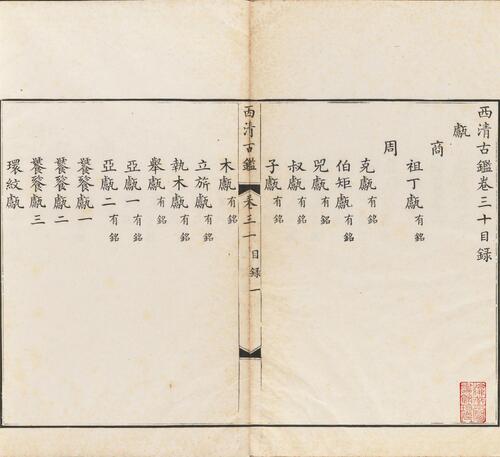 西清古鑑卷三十目錄
甗
商
祖丁甗有銘
周
克甗有銘
伯矩甗有銘
兕甗有銘
叔甗有銘
子甗有銘
西清古鑑 卷三十 目錄 一
木甗有銘
立旂甗有銘
執木甗有銘
舉甗有銘
亞甗一有銘
亞甗二有銘
饕餮甗一
饕餮甗二
饕餮甗三
環紋甗